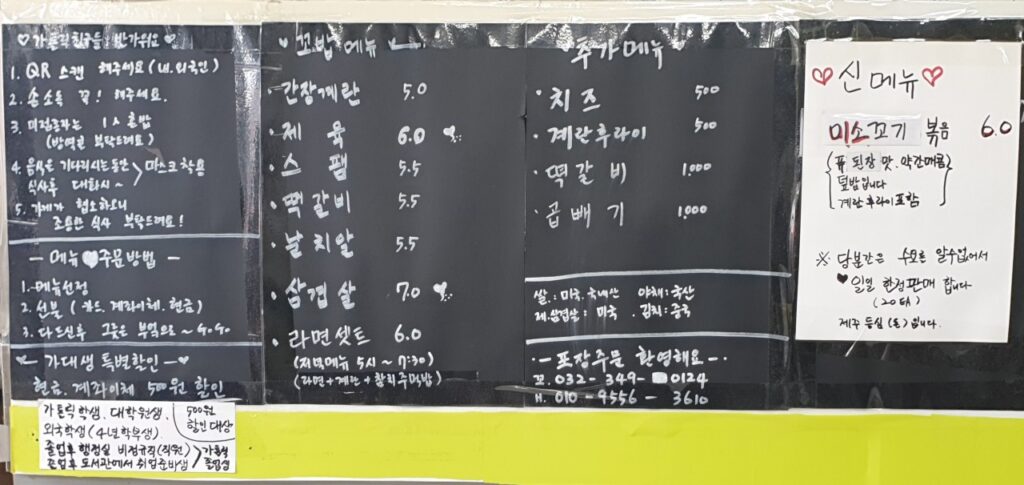 ♡ 가톨릭친구들 반가워요 ♡
1. QR 스캔 해주세요 (내.외국인)
2. 손소독 꼭! 해주세요.
3. 미접종자는 1人 혼밥
(방역관 부탁드려요)
4. 음식은 기다리시는동안
식사후 대화시 ~
마스크 착용
5. 가게가 협소하오니
조용한 식사 부탁드려요!
- 메뉴 ♥ 주문방법 -
1. 메뉴선정
2. 선불 (카드. 계좌이체. 현금)
3. 다드신후 그릇은 부엌으로 ~
- 가대생 특별할인 - ♥
현금. 계좌이체 500원 할인
가톨릭 학생. 대학원생.
외국학생 (4년학부생).
500원
할인 대상
졸업후 행정실 비정규직(직원)
졸업후 도서관에서 취업준비생
가톨릭
졸업생
꼬밥메뉴
간장계란 5.0
제육 6.0
스팸 5.5
떡갈비 5.5
날치알 5.5
삼겹살 7.0
라면셋트 6.0
(저녁메뉴 5시 ~ 7:30)
(라면 + 계란 + 참치주먹밥)
추가메뉴
치즈 500
계란후라이 500
떡갈비 1,000
곱빼기 1,000
쌀: 미국. 국내산 야채: 국산
제.삼겹살: 미국. 김치: 중국
- 포장주문 환영해요 -
꼬. 032-349-0124
H. 010-9556-3610
♡ 신메뉴 ♡
미소꼬기 볶음 6.0
된장 맛. 약간매콤
덮밥입니다
계란후라이 포함
※ 당분간은 수요를 알수없어서
♥ 일일 한정판매 합니다
(20명)
제주 등심 (돈) 입니다.